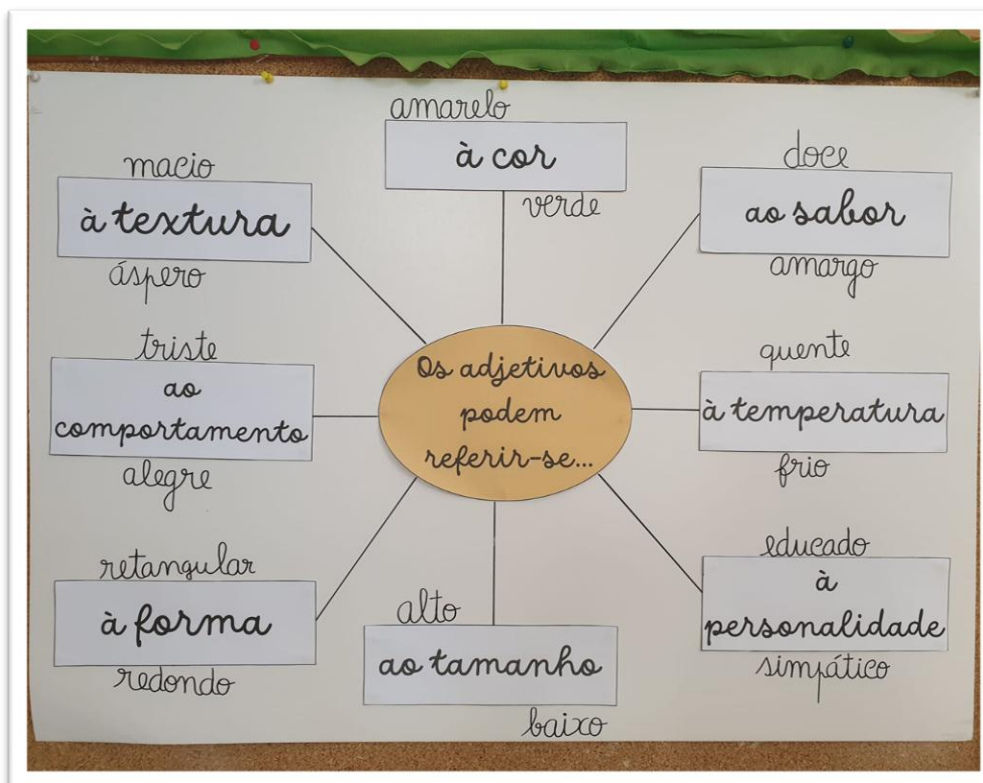 Os adjetivos
podem
referir-se...
amarelo
à cor
verde
doce
ao sabor
amargo
quente
à temperatura
frio
educado
à
personalidade
simpático
alto
ao tamanho
baixo
retangular
à forma
redondo
triste
ao
comportamento
alegre
macio
à textura
áspero